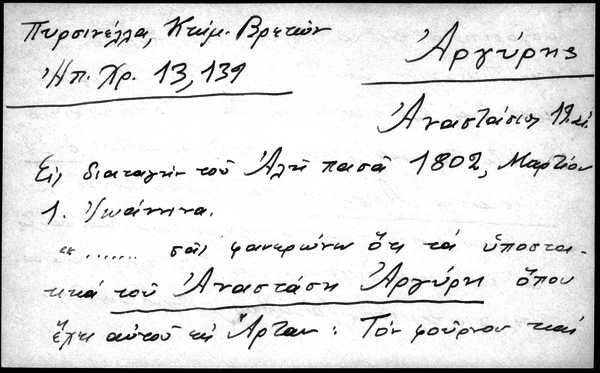 Πυρσινέλλα, Κτήμ. Βρετών
Ἀργύρης
Ἠπ. Χρ. 13, 139
Ἀναστάσιος
Εἰς διαταγήν τοῦ Ἀλῆ πασᾶ 1802, Μαρτίου
1. Ἰωάννινα.
"....... σᾶς φανερώνω ὅτι τά ὑποστα-
τικά τοῦ Ἀναστάση Ἀργύρη ὅπου
ἔχει αὐτοῦ εἰς Ἄρταν: Τόν φοῦρνον καί